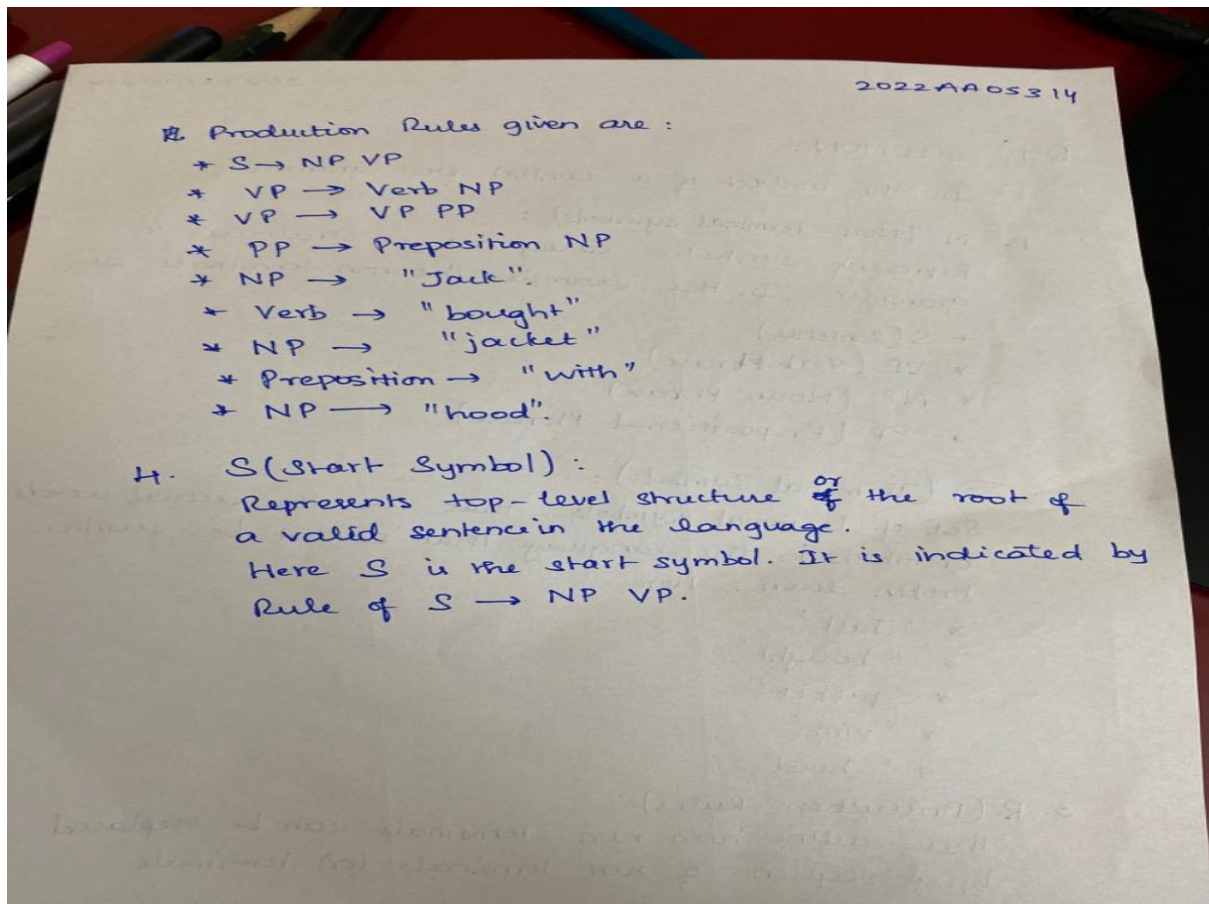 2022AA05314
Production Rules given are :
* S → NP VP
* VP → Verb NP
* VP → VP PP
* PP → Preposition NP
* NP → "Jack".
* Verb → "bought"
* NP → "jacket"
* Preposition → "with"
* NP → "hood".
4. S(Start Symbol) :
Represents top-level structure or the root of
a valid sentence in the language.
Here S is the start symbol. It is indicated by
Rule of S → NP VP.